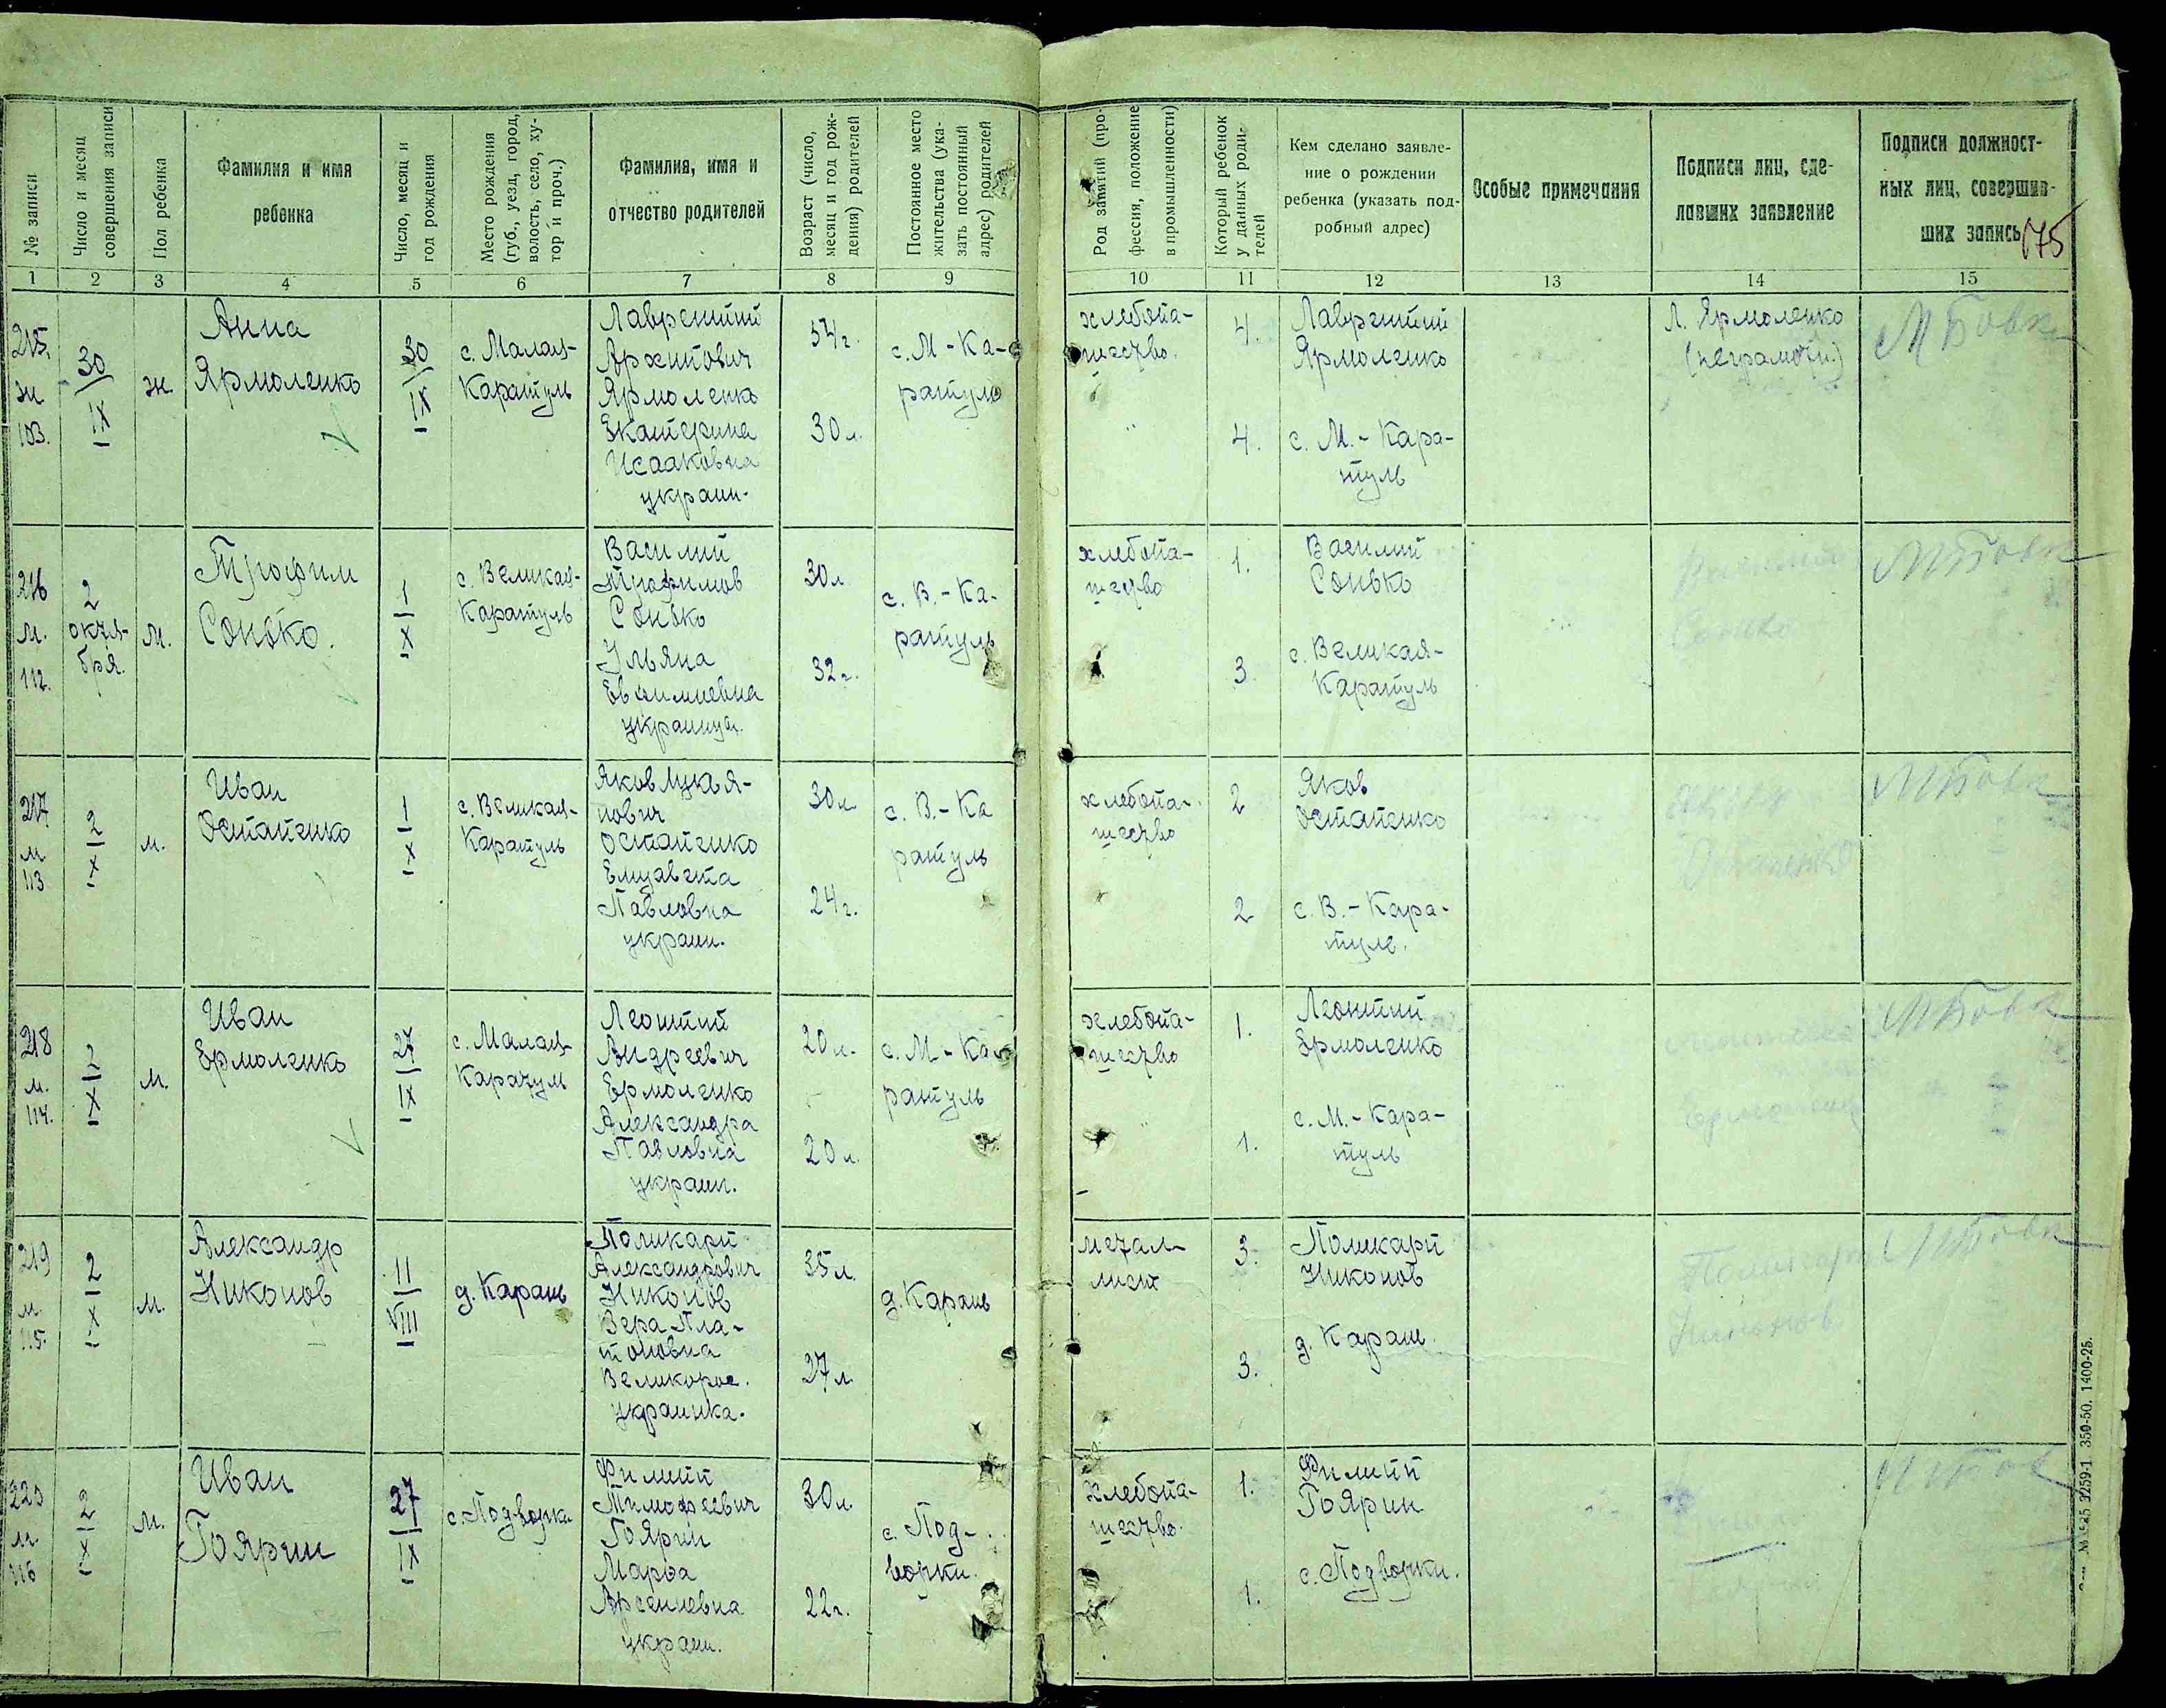 № записи
Число и месяц
совершения записи
Пол ребенка
Фамилия и имя
ребенка
Число, месяц и
год рождения
Место рождения
(губ., уезд, город,
волость, село, ху-
тор и проч.)
Фамилия, имя и
отчество родителей
Возраст (число,
месяц и год рож-
дения) родителей
Постоянное место
жительства (ука-
зать постоянный
адрес) родителей
Род занятий (про-
фессия, положение
в промышленности)
Который ребенок
у данных роди-
телей
Кем сделано заявле-
ние о рождении
ребенка (указать под-
робный адрес)
Особые примечания
Подписи лиц, сде-
лавших заявление
Подписи должност-
ных лиц, совершив-
ших запись
175
1 2 3 4 5 6 7 8 9 10 11 12 13 14 15
215.
ж
103.
30
IX
ж
Анна
Ярмоленко
30
IX
с. Малая-
Каратуль
Лаврентий
Архипович
Ярмоленко
Екатерина
Исааковна
украин.
34г.
30л.
с. М-Ка-
ратуль
хлебопа-
шество.
"
4.
4.
Лаврентий
Ярмоленко
с. М.-Кара-
туль
Л. Ярмоленко
(неграмотн.)
М Бовк
216
м.
112.
2
октя-
бря.
м.
Трофим
Сонько.
1
X
с. Великая-
Каратуль
Василий
Трофимов
Сонько
Ульяна
Евфимиевна
украинцы.
30л
32г.
с. В.-Ка-
ратуль
хлебопа-
шество
1.
3
Василий
Сонько
с. Великая-
Каратуль
Василий
Сонько
М Бовк
217
м
113
2
X
м.
Иван
Остапенко
1
X
с. Великая-
Каратуль
Яков Лукья-
нович
Остапенко
Елизавета
Павловна
украин.
30л
24г.
с. В.-Ка
ратуль
хлебопа-
шество
"
2
2
Яков
Остапенко
с. В.-Кара-
туле.
Остапенко
М Бовк
218
м.
114.
2
X
м.
Иван
Ермоленко
27
IX
с. Малая-
Каратуль
Леонтий
Андреевич
Ермоленко
Александра
Павловна
украин.
20л.
20л.
с. М-Ка-
ратуль
хлебопа-
шество
"
1.
1.
Леонтий
Ермоленко
с. М.-Кара-
туль
М Бовк
219
м
115.
2
X
м.
Александр
Никонов
11
VIII
д. Карань
Поликарп
Александрович
Никонов
Вера Пла-
тоновна
Великорос.
украинка.
35л.
27л
д. Карань
метал-
лист
3.
3.
Поликарп
Никонов
д. Карань.
Поликарп
Никонов
М Бовк
220
м.
116
2
X
м.
Иван
Гоярин
27
IX
с. Подворки
Филипп
Тимофеевич
Гоярин
Марфа
Арсениевна
украин.
30л.
22г.
с. Под-
ворки.
хлебопа-
шество.
1.
1.
Филипп
Гоярин
с. Подворки.
М Бовк
3259-1. 350-50. 1400-25.